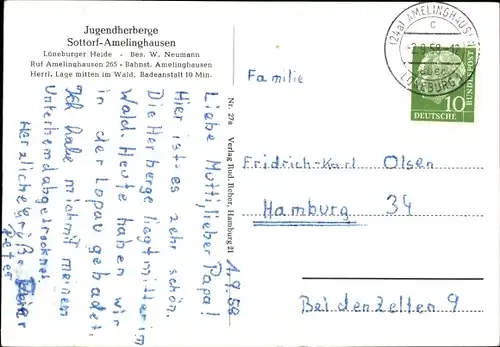 Jugendherberge
Sottorf-Amelinghausen
Lüneburger Heide - Bes. W. Neumann
Ruf Amelinghausen 265 - Bahnst. Amelinghausen
Herrl. Lage mitten im Wald, Badeanstalt 10 Min.
1.9.58
Liebe Mutti, lieber Papa!
Hier ist es sehr schön.
Die Herberge liegt mitten im
Wald. Heute haben wir
in der Lopau gebadet.
Ich habe mich mit meinem
Unterhemd abgetrocknet
Herzliche Grüße
Peter
Nr. 27a Verlag Rud. Reher, Hamburg 21
(24a) AMELINGHAUSEN
c
2.9.58
über
LÜNEBURG
10
DEUTSCHE
BUNDESPOST
Familie
Fridrich-Karl Olsen
Hamburg 34
Bei den Zelten 9